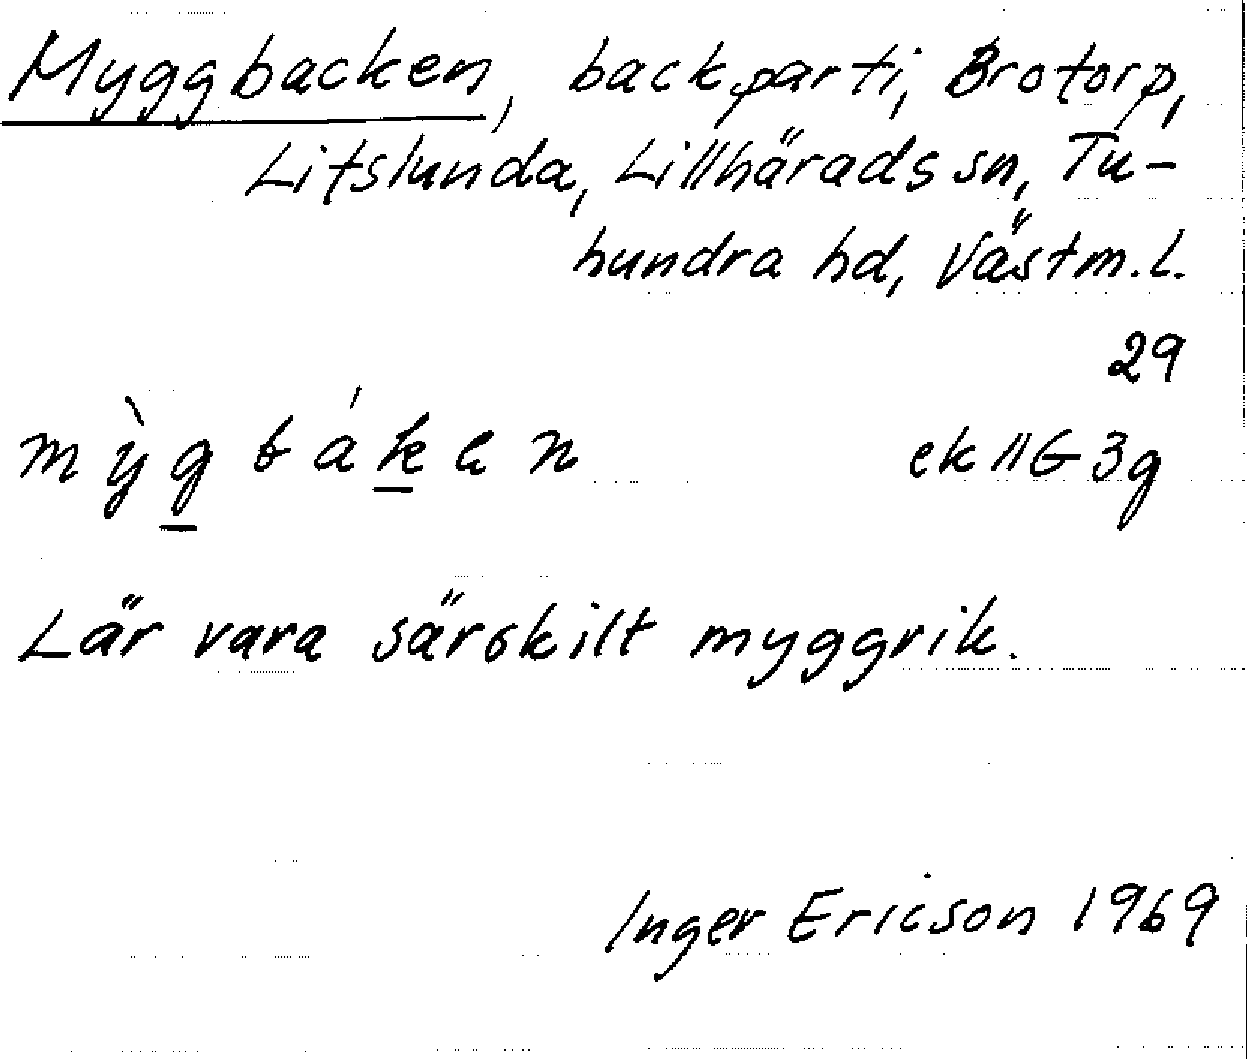 Myggbacken, backparti, Brotorp,
Litslunda, Lillhärads sn, Tu-
hundra hd, Västm. l.
29
mỳg bákan ek 11G 3g
Lär vara särskilt myggrik.
Inger Ericson 1969